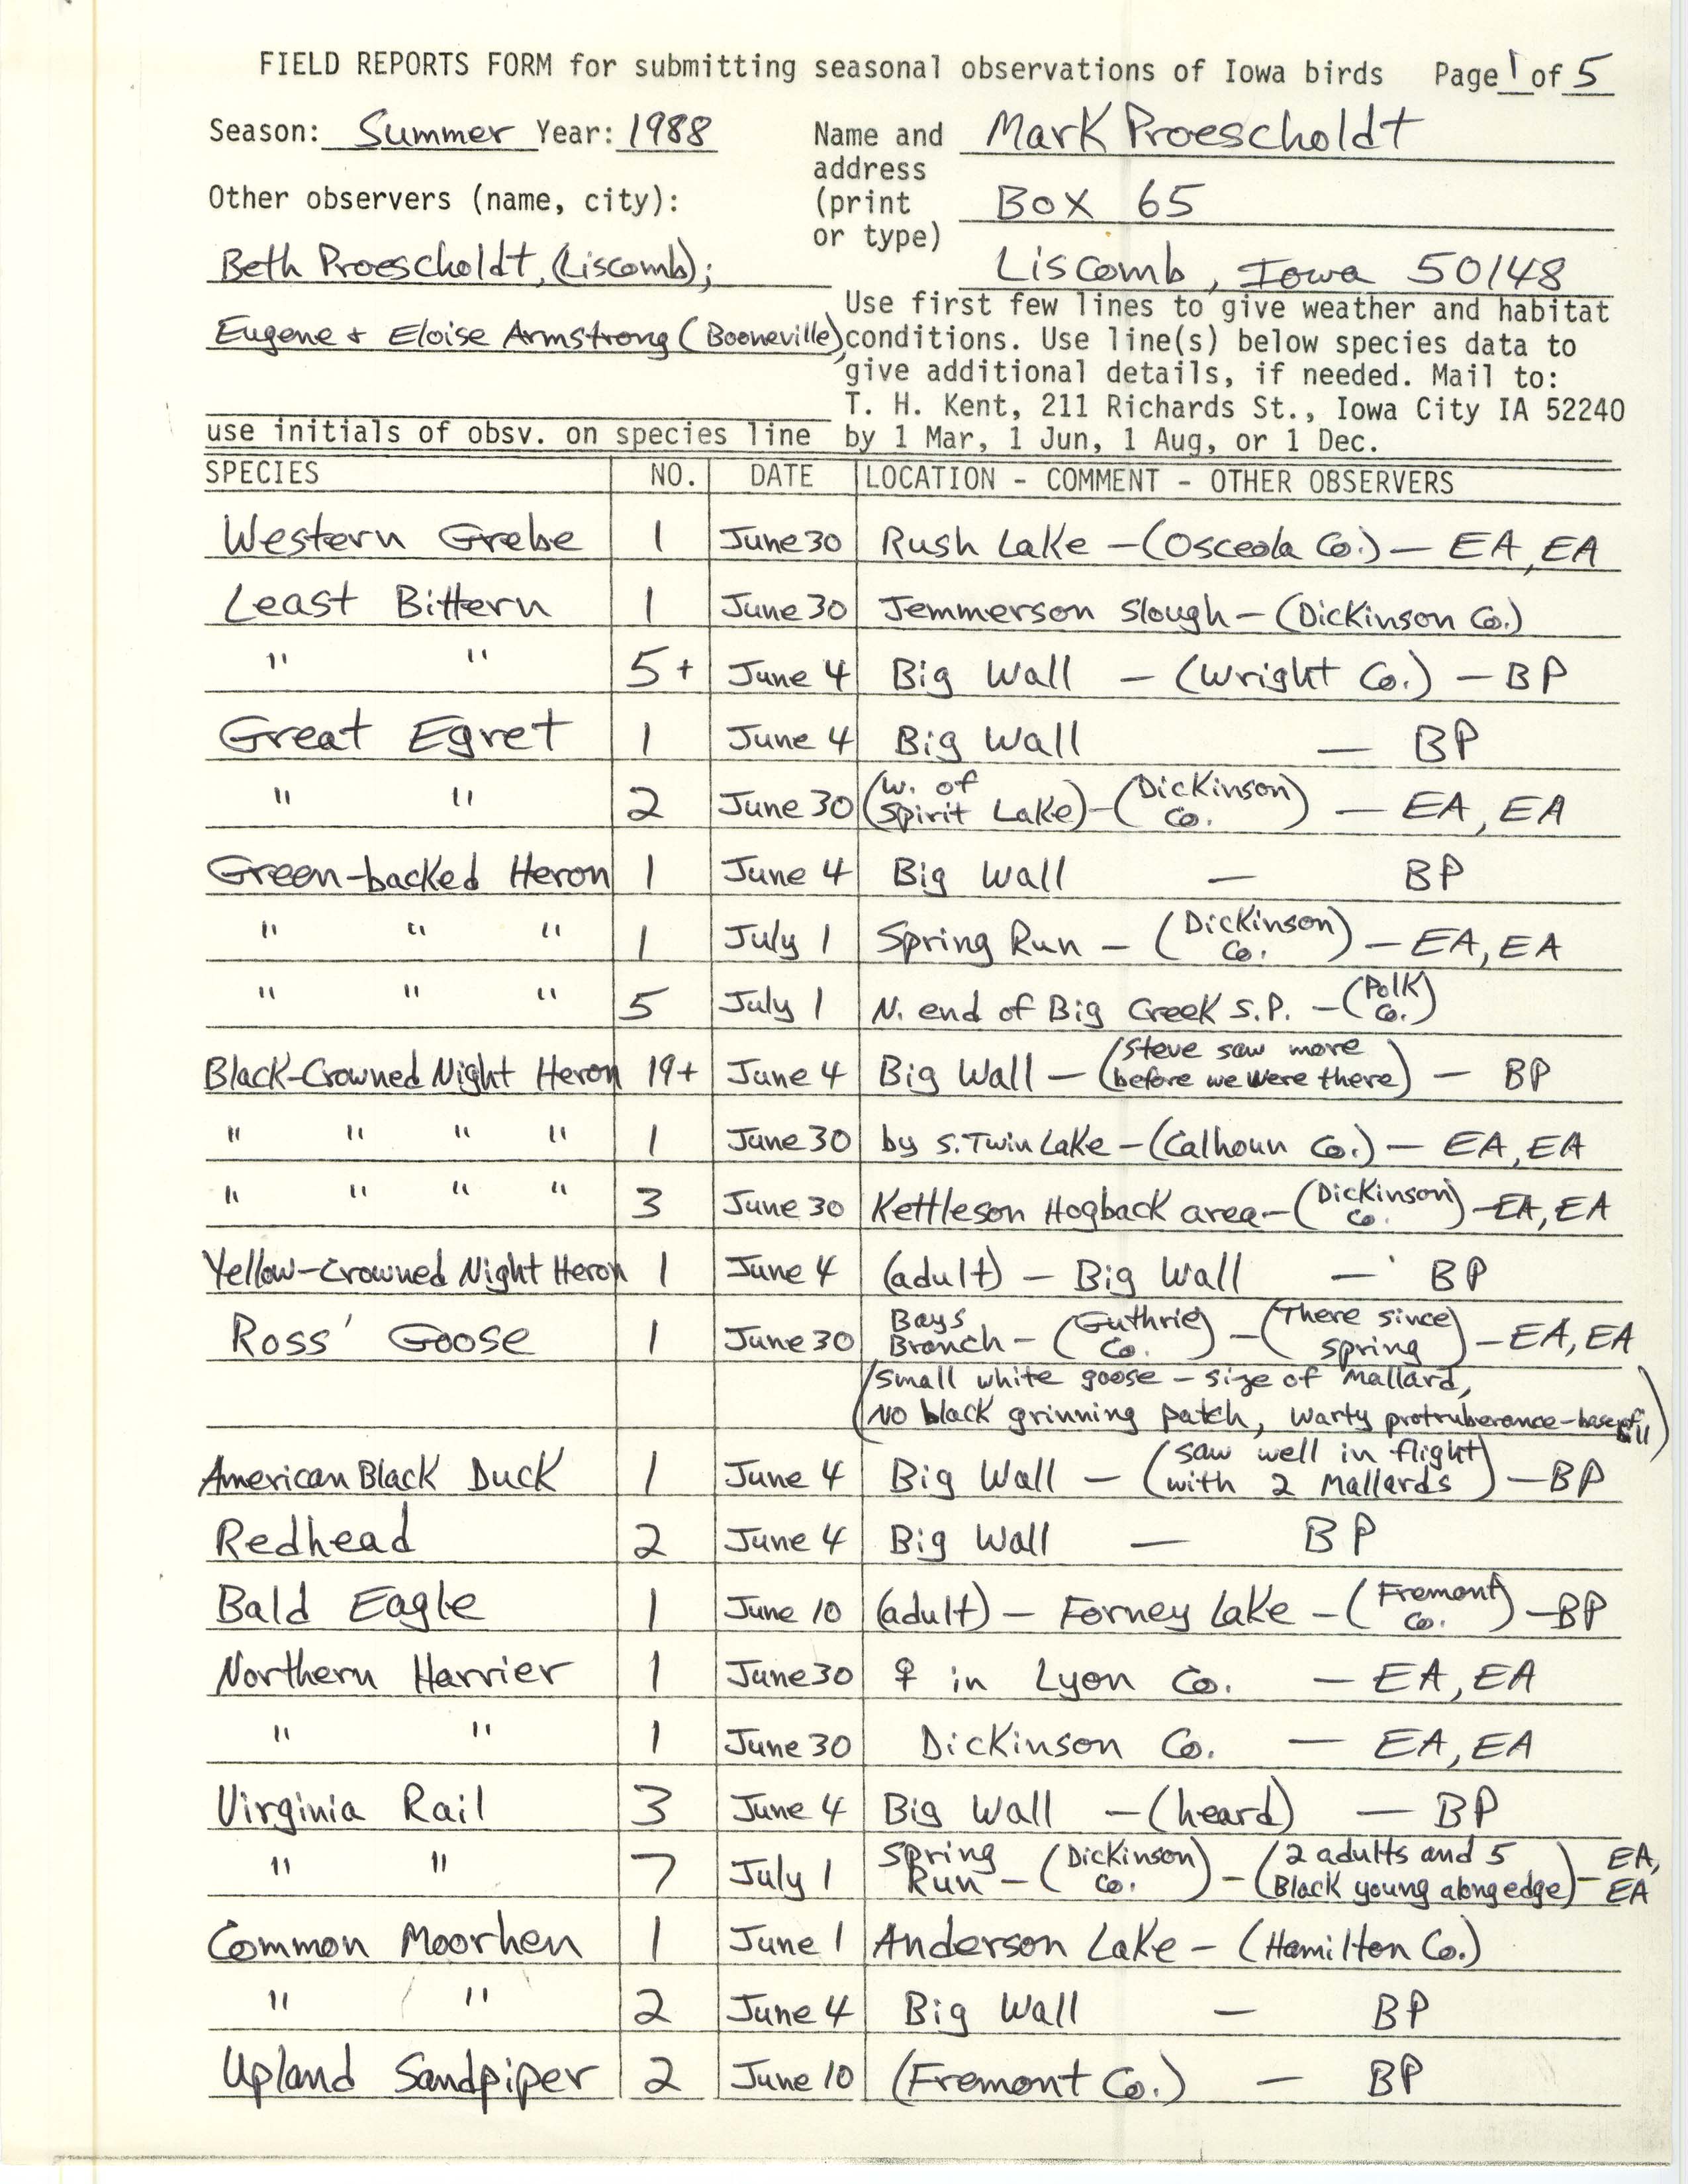 FIELD REPORTS FORM for submitting seasonal observations of Iowa birds Page 1 of 5
Season: Summer Year: 1988 Name and Mark Proescholdt
address
Other observers (name, city): (print Box 65
or type)
Beth Proescholdt, (Liscomb); Liscomb, Iowa 50148
Use first few lines to give weather and habitat
Eugene + Eloise Armstrong (Booneville), conditions. Use line(s) below species data to
give additional details, if needed. Mail to:
T. H. Kent, 211 Richards St., Iowa City IA 52240
use initials of obsv. on species line by 1 Mar, 1 Jun, 1 Aug, or 1 Dec.
SPECIES NO. DATE LOCATION - COMMENT - OTHER OBSERVERS
Western Grebe 1 June 30 Rush Lake - (Osceola Co.) - EA, EA
Least Bittern 1 June 30 Jemmerson Slough - (Dickinson Co.)
" " 5+ June 4 Big Wall - (Wright Co.) - BP
Great Egret 1 June 4 Big Wall - BP
" " 2 June 30 (W. of Spirit Lake) - (Dickinson Co.) - EA, EA
Green-backed Heron 1 June 4 Big Wall - BP
" " " 1 July 1 Spring Run - (Dickinson Co.) - EA, EA
" " " 5 July 1 N. end of Big Creek S.P. - (Polk Co.)
Black-Crowned Night Heron 19+ June 4 Big Wall - (Steve saw more before we were there) - BP
" " " " 1 June 30 by S. Twin Lake - (Calhoun Co.) - EA, EA
" " " " 3 June 30 Kettleson Hogback area - (Dickinson Co.) - EA, EA
Yellow-Crowned Night Heron 1 June 4 (adult) - Big Wall - BP
Ross' Goose 1 June 30 Bays Branch - (Guthrie Co.) - (There since spring) - EA, EA
(Small white goose - size of Mallard,
No black grinning patch, warty protruberance - base of bill)
American Black Duck 1 June 4 Big Wall - (saw well in flight with 2 Mallards) - BP
Redhead 2 June 4 Big Wall - BP
Bald Eagle 1 June 10 (adult) - Forney Lake - (Fremont Co.) - BP
Northern Harrier 1 June 30 ♀ in Lyon Co. - EA, EA
" " 1 June 30 Dickinson Co. - EA, EA
Virginia Rail 3 June 4 Big Wall - (heard) - BP
" " 7 July 1 Spring Run - (Dickinson Co.) - (2 adults and 5 Black young along edge) - EA, EA
Common Moorhen 1 June 1 Anderson Lake - (Hamilton Co.)
" " 2 June 4 Big Wall - BP
Upland Sandpiper 2 June 10 (Fremont Co.) - BP